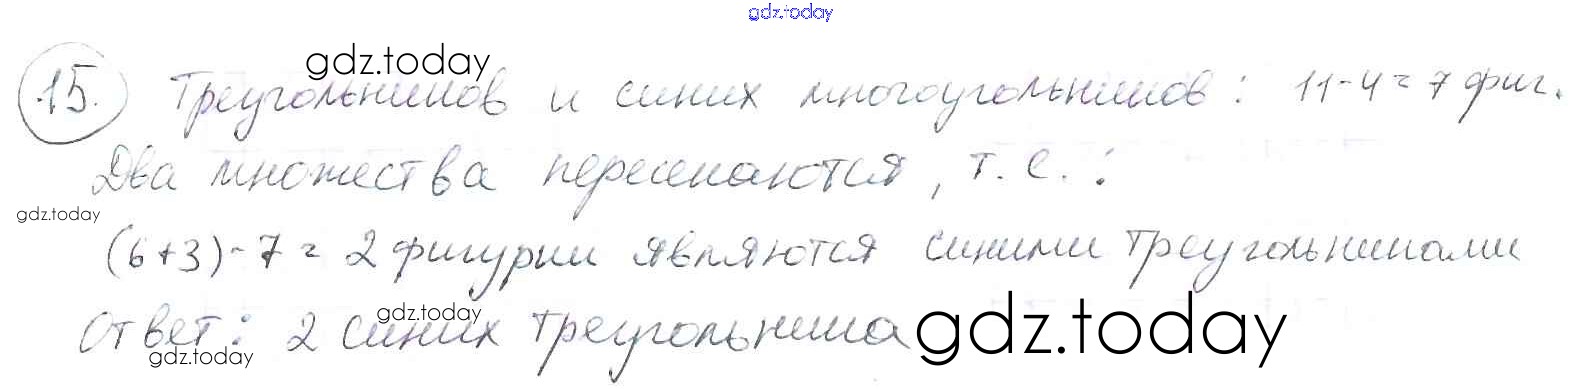 gdz.today
gdz.today
15. Треугольников и синих многоугольников: 11-4=7 фиг.
Два множества пересекаются, т.е.:
gdz.today
(6+3)-7=2 фигуры являются синими треугольниками
gdz.today
gdz.today
Ответ: 2 синих треугольника
gdz.today